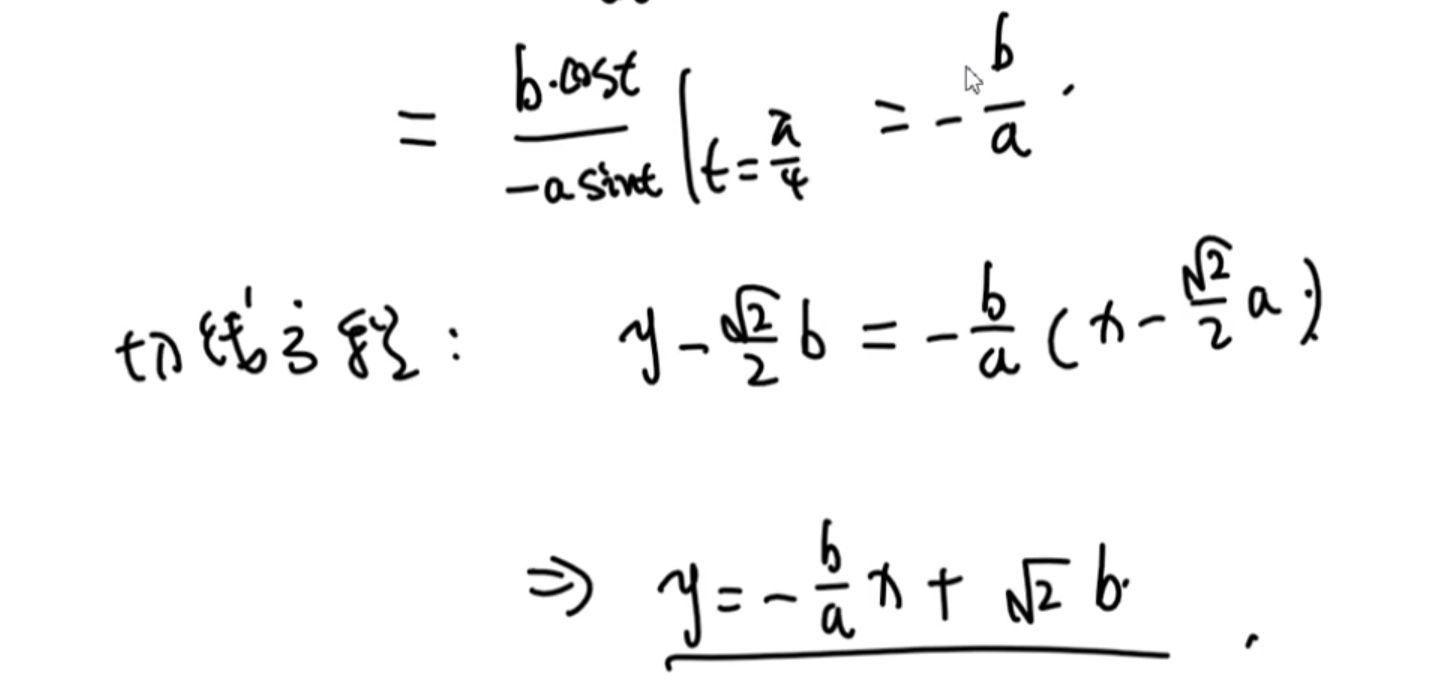 = b·cost / -a sint | t = π/4 = - b/a .
切线方程: y - √2/2 b = - b/a ( x - √2/2 a )
⇒ y = - b/a x + √2 b .